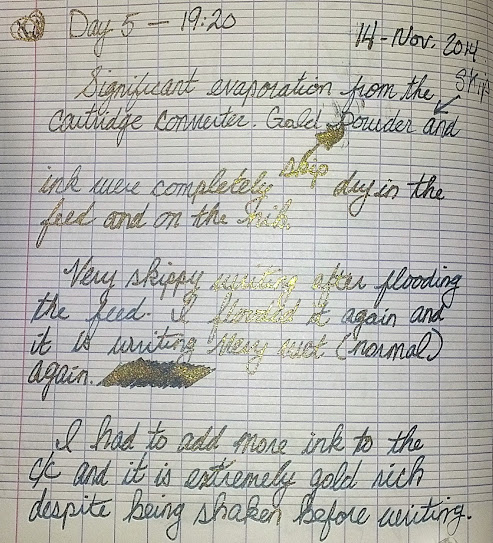 Day 5 — 19:20
14-Nov. 2014
Significant evaporation from the
skip
cartridge converter. Gold Powder and
ink were completely skip dry in the
feed and on the nib.
Very skippy writing after flooding
the feed. I flooded it again and
it is writing very wet (normal)
again.
I had to add more ink to the
c/c and it is extremely gold rich
despite being shaken before writing.